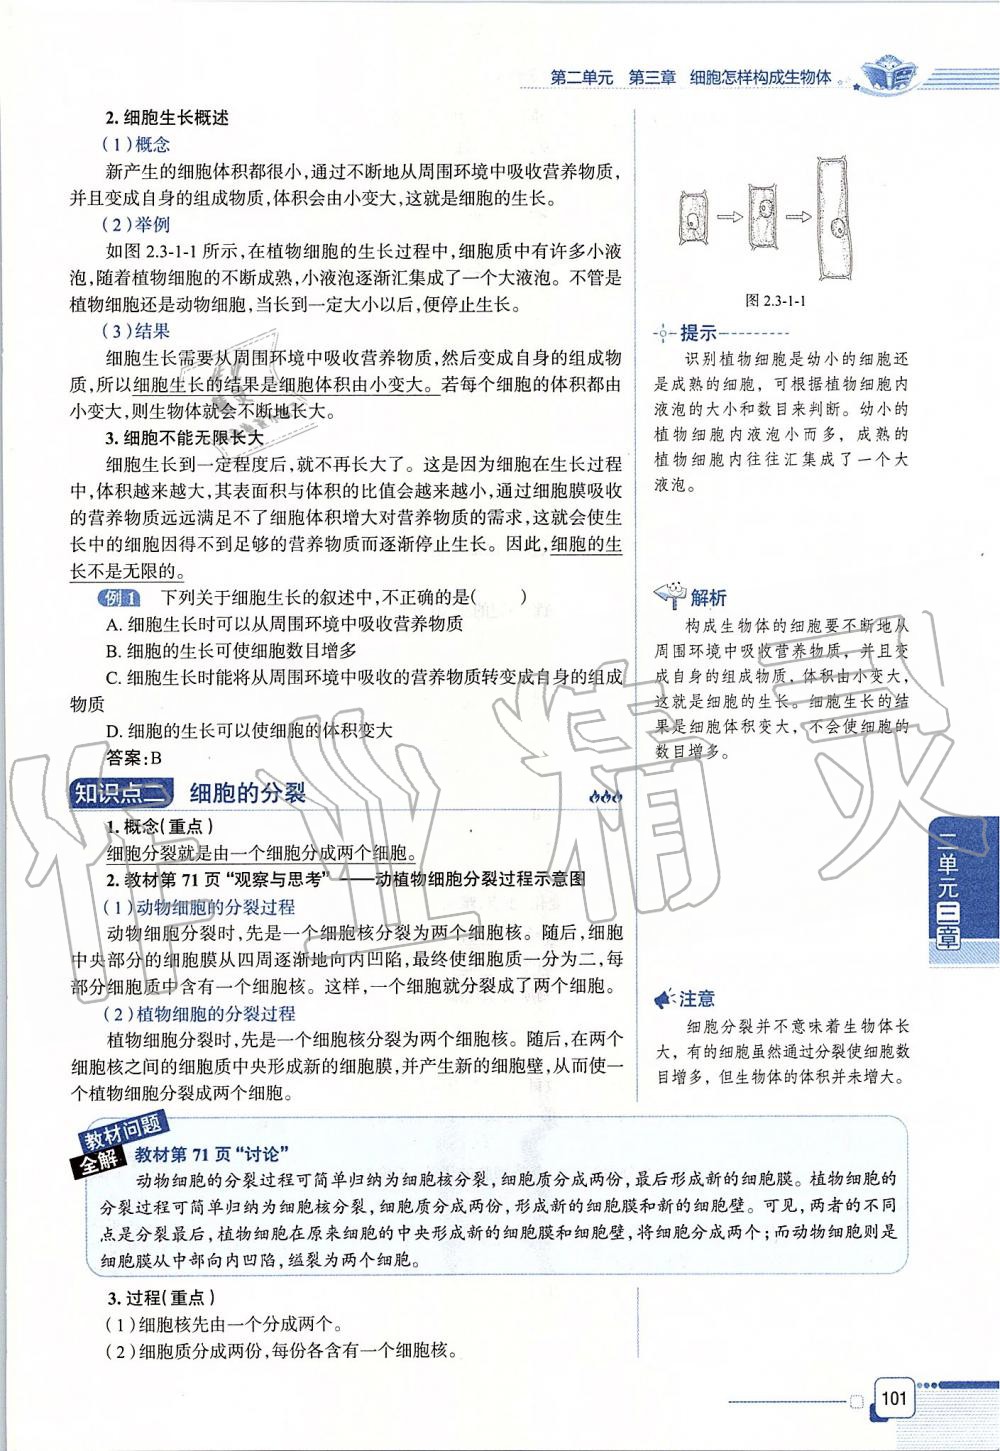 第二单元 第三章 细胞怎样构成生物体
2. 细胞生长概述
(1)概念
新产生的细胞体积都很小,通过不断地从周围环境中吸收营养物质,
并且变成自身的组成物质,体积会由小变大,这就是细胞的生长。
(2)举例
如图 2.3-1-1 所示,在植物细胞的生长过程中,细胞质中有许多小液
泡,随着植物细胞的不断成熟,小液泡逐渐汇集成了一个大液泡。不管是
植物细胞还是动物细胞,当长到一定大小以后,便停止生长。
(3)结果
细胞生长需要从周围环境中吸收营养物质,然后变成自身的组成物
质,所以细胞生长的结果是细胞体积由小变大。若每个细胞的体积都由
小变大,则生物体就会不断地长大。
3. 细胞不能无限长大
细胞生长到一定程度后,就不再长大了。这是因为细胞在生长过程
中,体积越来越大,其表面积与体积的比值会越来越小,通过细胞膜吸收
的营养物质远远满足不了细胞体积增大对营养物质的需求,这就会使生
长中的细胞因得不到足够的营养物质而逐渐停止生长。因此,细胞的生
长不是无限的。
例 1 下列关于细胞生长的叙述中,不正确的是( )
A. 细胞生长时可以从周围环境中吸收营养物质
B. 细胞的生长可使细胞数目增多
C. 细胞生长时能将从周围环境中吸收的营养物质转变成自身的组成
物质
D. 细胞的生长可以使细胞的体积变大
答案:B
知识点二 细胞的分裂
1. 概念(重点)
细胞分裂就是由一个细胞分成两个细胞。
2. 教材第 71 页“观察与思考”——动植物细胞分裂过程示意图
(1)动物细胞的分裂过程
动物细胞分裂时,先是一个细胞核分裂为两个细胞核。随后,细胞
中央部分的细胞膜从四周逐渐地向内凹陷,最终使细胞质一分为二,每
部分细胞质中含有一个细胞核。这样,一个细胞就分裂成了两个细胞。
(2)植物细胞的分裂过程
植物细胞分裂时,先是一个细胞核分裂为两个细胞核。随后,在两个
细胞核之间的细胞质中央形成新的细胞膜,并产生新的细胞壁,从而使一
个植物细胞分裂成两个细胞。
图 2.3-1-1
提示
识别植物细胞是幼小的细胞还
是成熟的细胞,可根据植物细胞内
液泡的大小和数目来判断。幼小的
植物细胞内液泡小而多,成熟的
植物细胞内往往汇集成了一个大
液泡。
解析
构成生物体的细胞要不断地从
周围环境中吸收营养物质,并且变
成自身的组成物质,体积由小变大,
这就是细胞的生长。细胞生长的结
果是细胞体积变大,不会使细胞的
数目增多。
二单元三章
注意
细胞分裂并不意味着生物体长
大,有的细胞虽然通过分裂使细胞数
目增多,但生物体的体积并未增大。
教材问题
全解
教材第 71 页“讨论”
动物细胞的分裂过程可简单归纳为细胞核分裂,细胞质分成两份,最后形成新的细胞膜。植物细胞的
分裂过程可简单归纳为细胞核分裂,细胞质分成两份,形成新的细胞膜和新的细胞壁。可见,两者的不同
点是分裂最后,植物细胞在原来细胞的中央形成新的细胞膜和细胞壁,将细胞分成两个;而动物细胞则是
细胞膜从中部向内凹陷,缢裂为两个细胞。
3. 过程(重点)
(1)细胞核先由一个分成两个。
(2)细胞质分成两份,每份各含有一个细胞核。
101
作业精灵